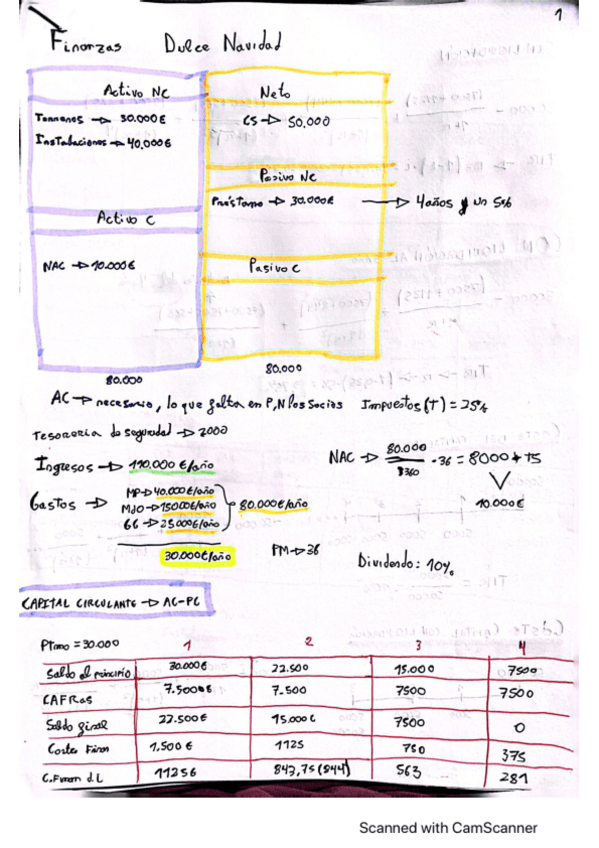 1
Finanzas Dulce Navidad
Activo NC
Neto
Terrenos → 30.000€
CS → 50.000
Instalaciones → 40.000€
Pasivo NC
Préstamo → 30.000€ → 4años y un 5%
Activo C
NAC → 10.000€
Pasivo C
80.000
80.000
AC → necesario, lo que falta en P,N los socios Impuestos(T) = 25%
Tesoreria de seguridad → 2000
Ingresos → 110.000 €/año
NAC → 80.000 / 360 · 36 = 8000 + TS
10.000€
Gastos →
MP → 40.000€/año
MdO → 15000€/año
GG → 25000€/año
80.000€/año
30.000€/año
PM → 36
Dividendo: 10%
CAPITAL CIRCULANTE → AC-PC
Ptamo = 30.000 1 2 3 4
Saldo al principio 30.000€ 22.500 15.000 7500
CAFRas 7.500€ 7.500 7500 7500
Saldo final 22.500€ 15.000€ 7500 0
Costes Finan 1.500€ 1125 750 375
C.Finan d.I. 1125€ 843,75 (844) 563 281
Scanned with CamScanner